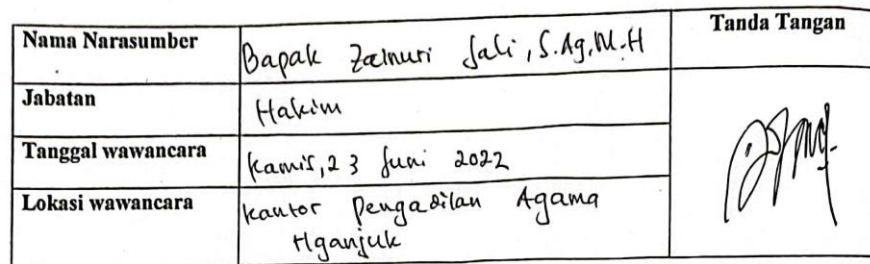 Nama Narasumber Bapak Zainuri Jali, S.Ag, M.H Tanda Tangan
Jabatan Hakim
Tanggal wawancara Kamis, 23 Juni 2022
Lokasi wawancara Kantor Pengadilan Agama
Nganjuk